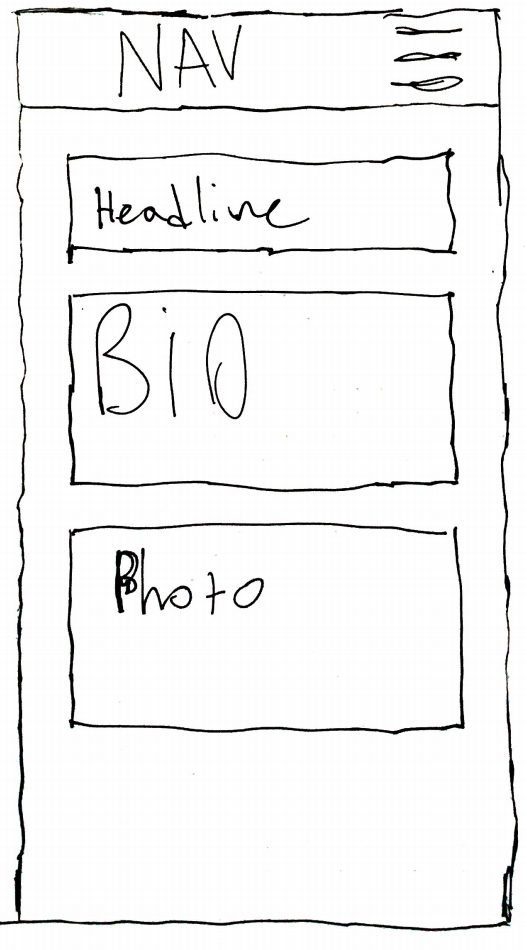 NAV
Headline
BiO
Photo